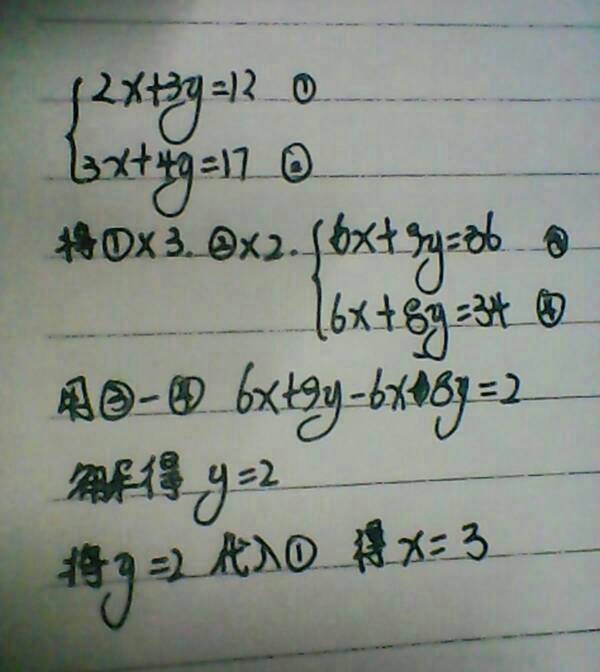 2x+3y=12 ①
3x+4y=17 ②
将①×3.②×2. 6x+9y=36 ③
6x+8y=34 ④
用③-④ 6x+9y-6x-8y=2
解得 y=2
将y=2代入① 得x=3